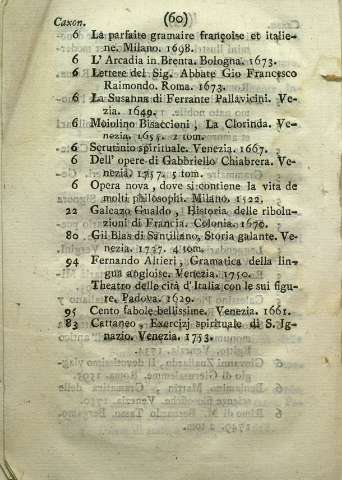 Caxon. (60)
6 La parfaite gramaire françoise et italie-
ne. Milano. 1698.
6 L' Arcadia in Brenta. Bologna. 1673.
6 Lettere del Sig. Abbate Gio Francesco
Raimondo. Roma. 1673.
6 La Susanna di Ferrante Pallavicini. Ve-
zia. 1649.
6 Moiolino Bisaccioni, La Clorinda. Ve-
nezia. 1655. 2 tom.
6 Scrutinio spirituale. Venezia. 1667.
6 Dell' opere di Gabbriello Chiabrera. Ve-
nezia. 1757. 5 tom.
6 Opera nova, dove si contiene la vita de
molti philosophi. Milano. 1522.
22 Galeazo Gualdo, Historia delle ribolu-
zioni di Francia. Colonia. 1670.
80 Gil Blas di Santillano, Storia galante. Ve-
nezia. 1757. 4 tom.
94 Fernando Altieri, Gramatica della lin-
gua angloise. Venezia. 1750.
Theatro delle cità d' Italia con le sui figu-
re. Padova. 1629.
95 Cento fabole bellissime. Venezia. 1661.
83 Cattaneo, Exercizj spirituale di S. Ig-
nazio. Venezia. 1753.